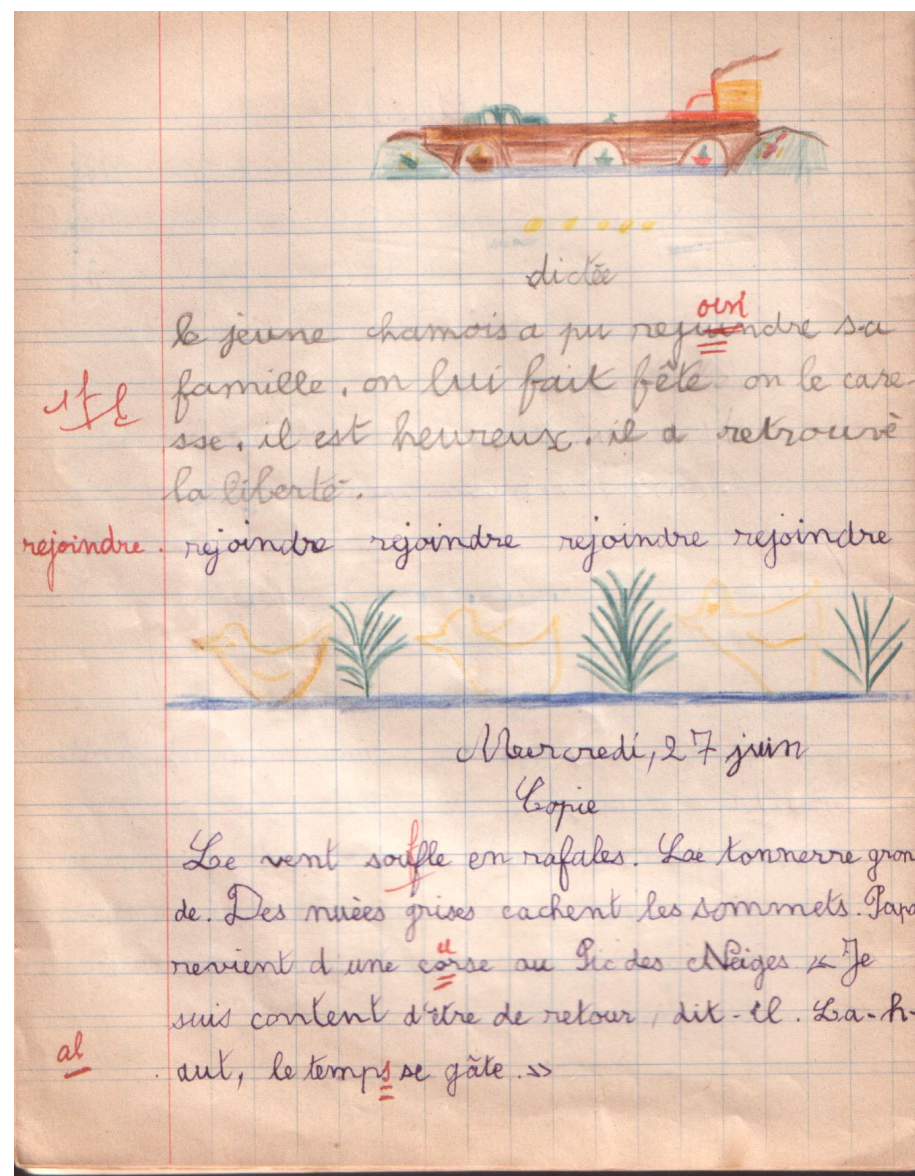 dictée
oin
le jeune chamois a pu rejuindre sa
famille. on lui fait fête on le care-
sse. il est heureux. il a retrouvè
la liberté.
rejoindre. rejoindre rejoindre rejoindre rejoindre
Mercredi, 27 juin
Copie
f
Le vent soufle en rafales. Lae tonnerre gron
de. Des nuèes grises cachent les sommets. Papa
u
revient d une corse au Pic des Neiges « Je
suis content d'être de retour, dit-il. La-h-
al aut, le temps se gâte. »